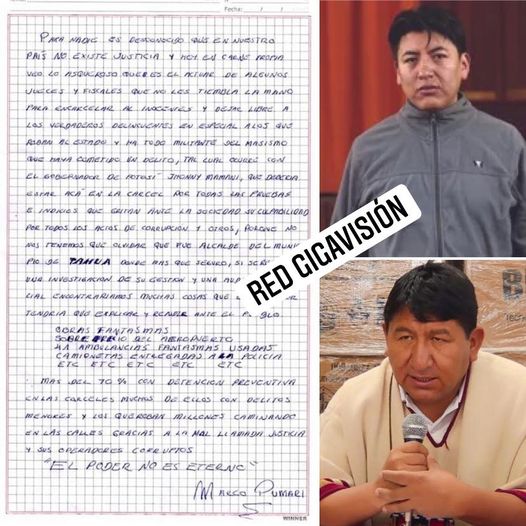 Fecha:
PARA NADIE ES DESCONOCIDO QUE EN NUESTRO
PAÍS NO EXISTE JUSTICIA Y HOY EN CARNE PROPIA
VEO LO ASQUEROSO QUE ES EL ACTUAR DE ALGUNOS
JUECES Y FISCALES QUE NO LES TIEMBLA LA MANO
PARA ENCARCELAR AL INOCENTES Y DEJAR LIBRE A
LOS VERDADEROS DELINCUENTES EN ESPECIAL A LOS QUE
ROBAN AL ESTADO Y HA TODO MILITANTE DEL MASISMO
QUE HAYA COMETIDO EN DELITO, TAL CUAL OCURRE CON
EL GOBERNADOR DE POTOSÍ JHONNY MAMANI, QUE DEBERIA
ESTAR ACÁ EN LA CARCEL POR TODAS LAS PRUEBAS
E INDICIOS QUE GRITAN ANTE LA SOCIEDAD SU CULPABILIDAD
POR TODOS LOS ACTOS DE CORRUPCIÓN Y OTROS, PORQUE NO
NOS TENEMOS QUE OLVIDAR QUE FUE ALCALDE DEL MUNI
PIO DE TAHUA DONDE MAS QUE SEGURO, SI SE
UNA INVESTIGACION DE SU GESTION Y UNA AU
CIAL ENCONTRARIAMOS MUCHAS COSAS QUE
TENDRIA QUE EXPLICAR Y ANTE EL
OBRAS FANTASMAS
SOBRE PRECIO DEL AEROPUERTO
41 AMBULANCIAS FANTASMAS USADAS
CAMIONETAS ENTREGADAS A LA POLICIA
ETC ETC ETC ETC ETC
MAS DEL 70% CON DETENCION PREVENTIVA
EN LAS CARCELES MUCHOS DE ELLOS CON DELITOS
MENORES Y LOS QUE ROBAN MILLONES CAMINANDO
EN LAS CALLES GRACIAS A LA MAL LLAMADA JUSTICIA
Y SUS OPERADORES CORRUPTOS
"EL PODER NO ES ETERNO"
MARCO PUMARI
WINNER
RED GIGAVISIÓN